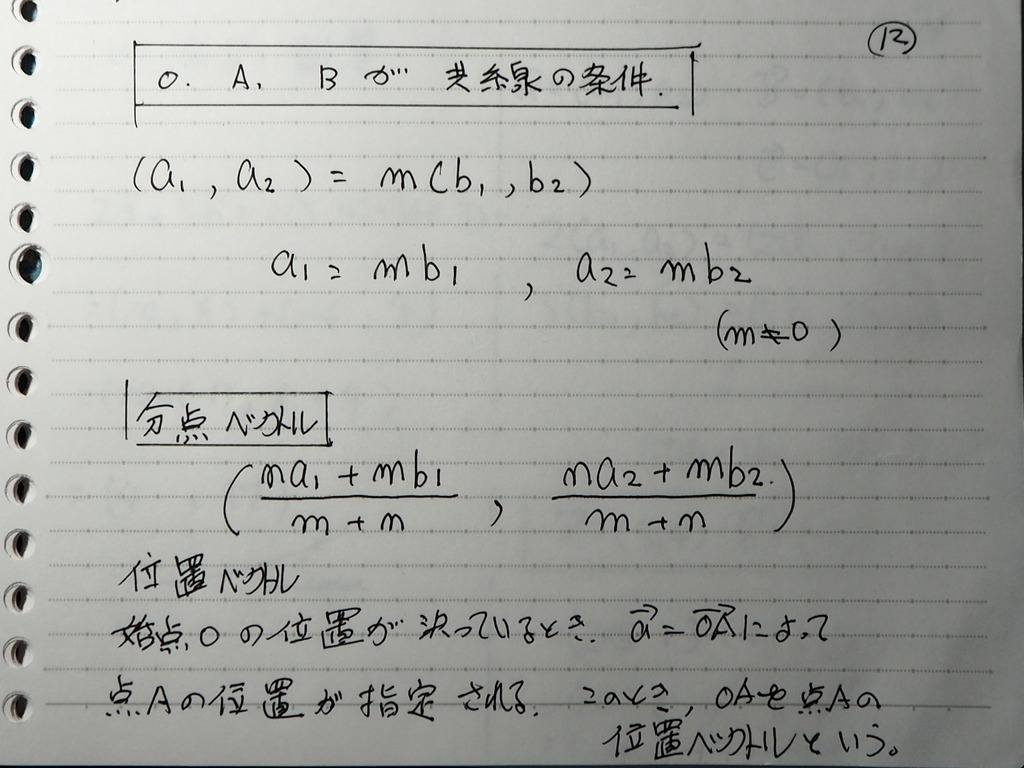 12
O. A. B が 共線の条件.
(a₁, a₂) = m(b₁, b₂)
a₁ = mb₁ , a₂ = mb₂
(m≠0)
分点ベクトル
((na₁+mb₁)/(m+n) , (na₂+mb₂)/(m+n))
位置ベクトル
始点Oの位置が決っているとき. a⃗ = OA⃗ によって
点Aの位置が指定される. このとき, OAを点Aの
位置ベクトルという。